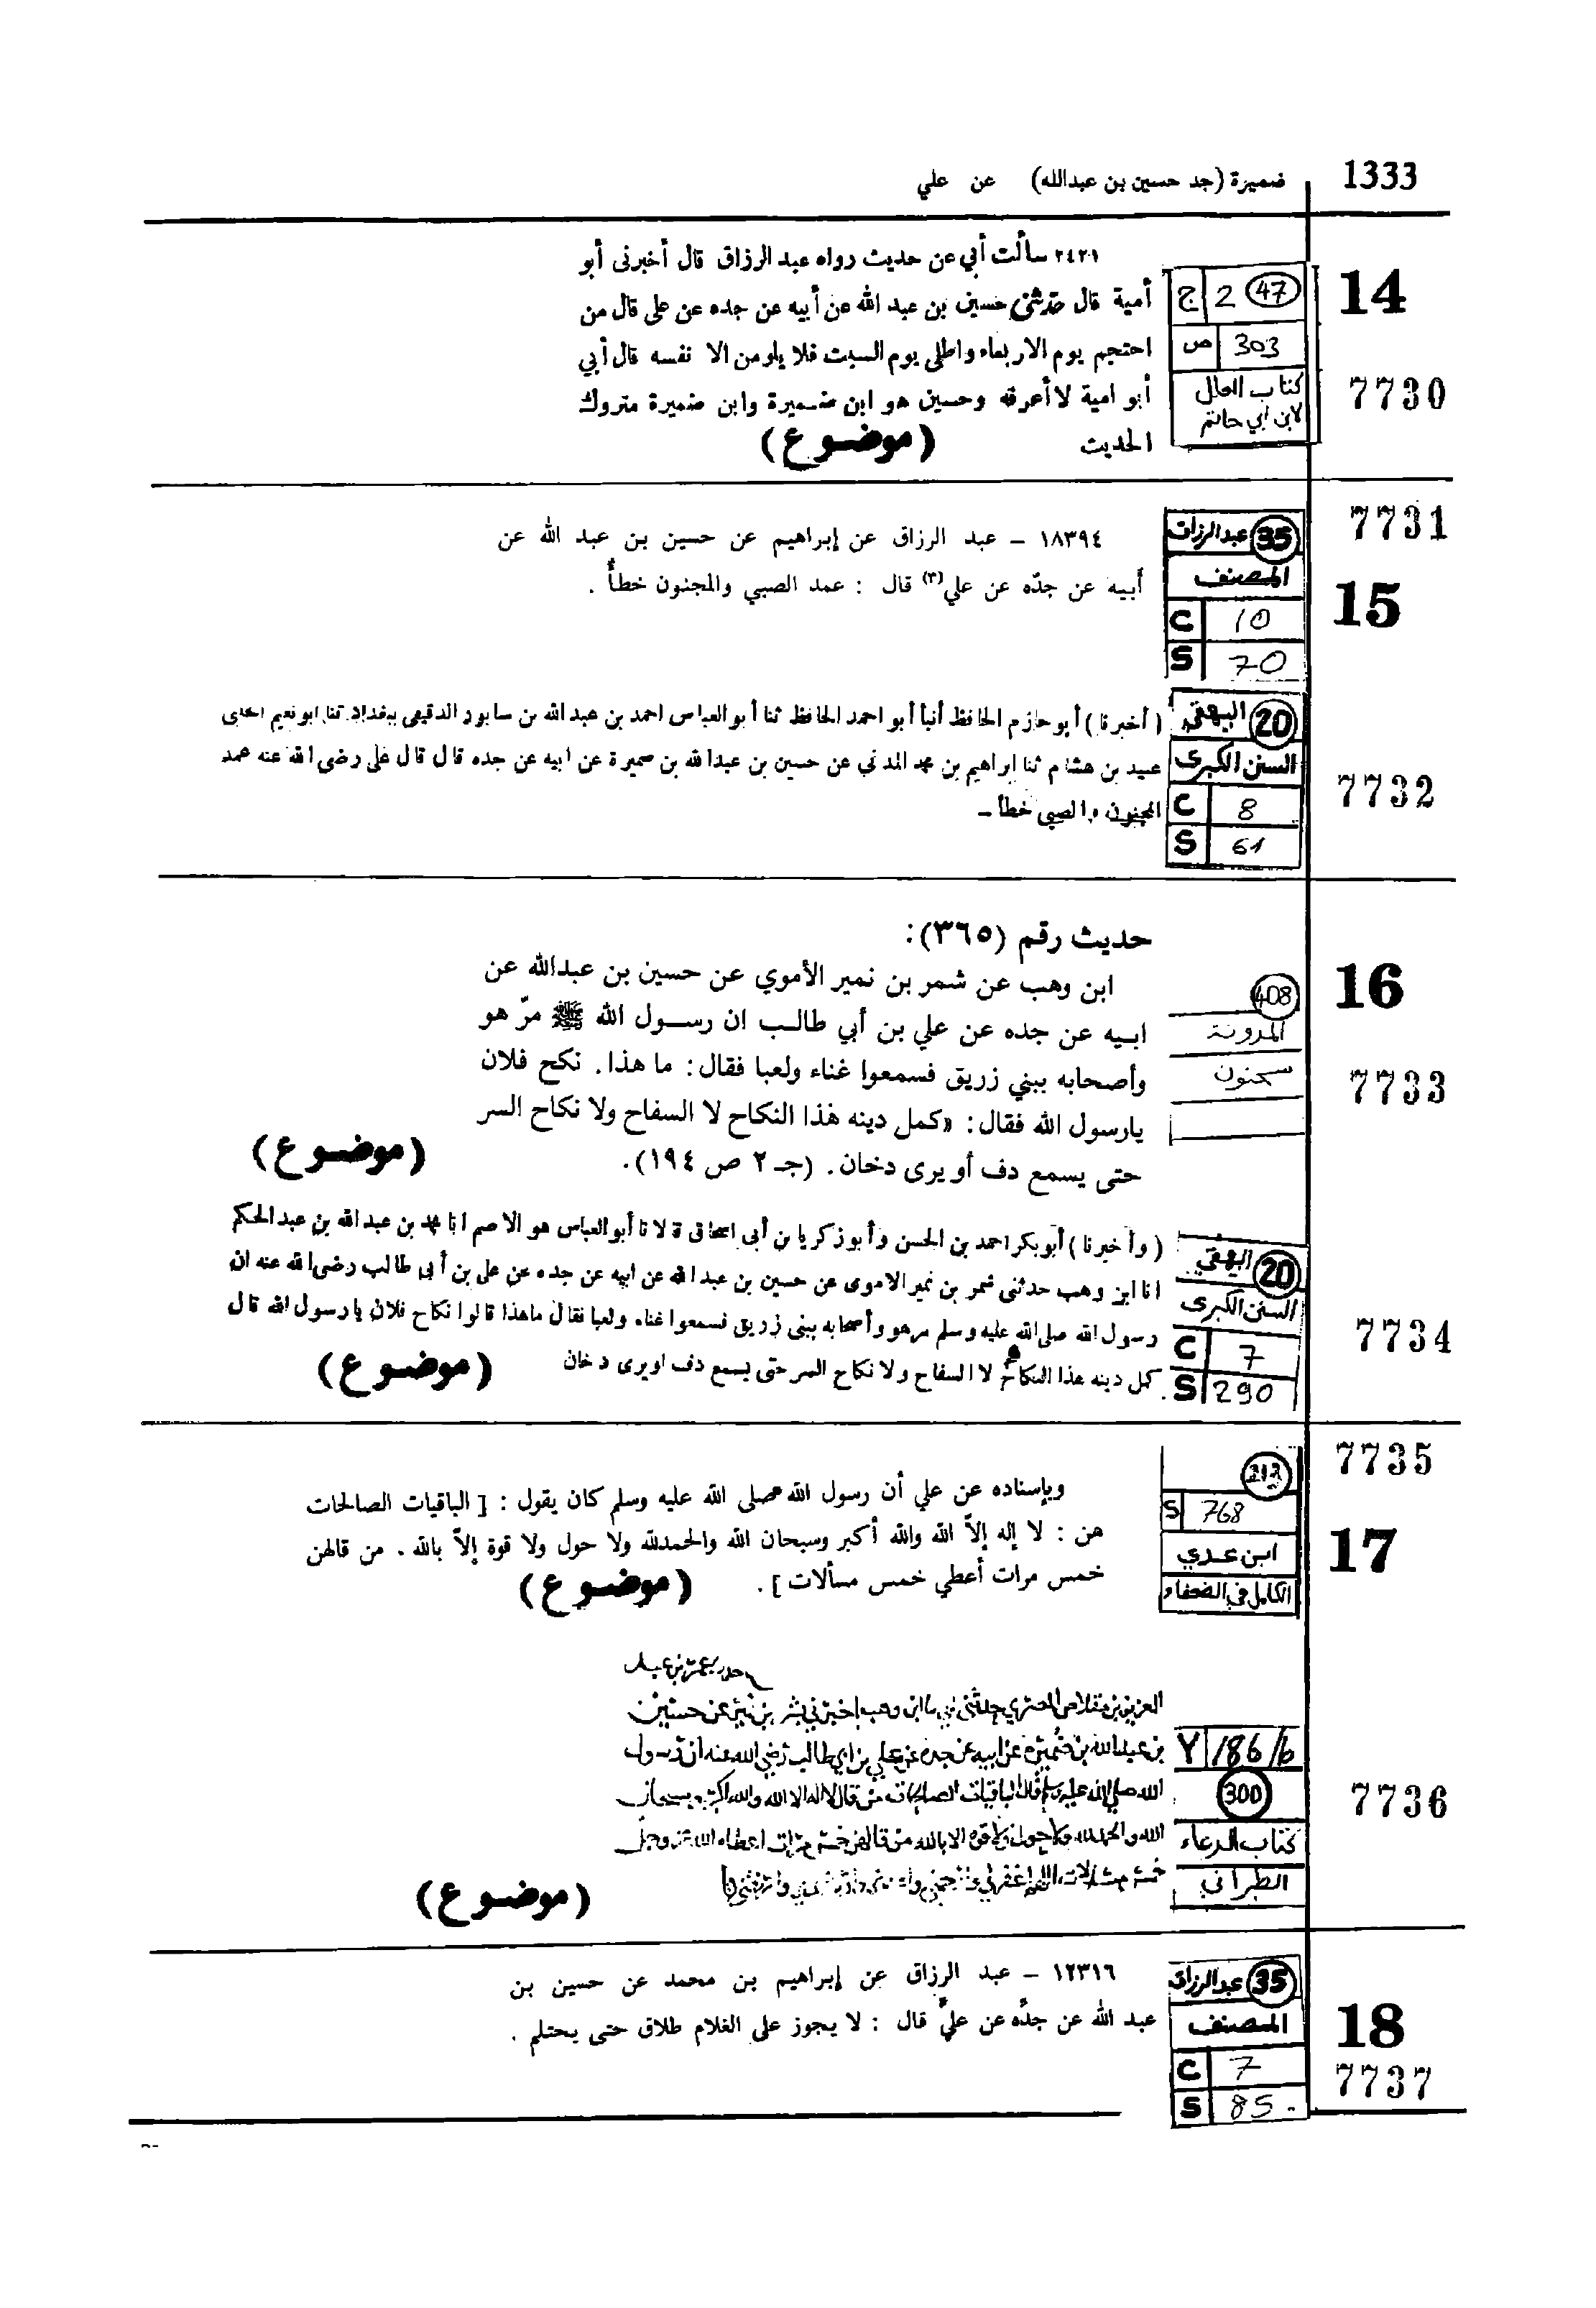 1333
ضميرة (جد حسين بن عبدالله) عن علي
14
7730
47 2 ج
303 ص
كتاب العلل
لابن أبي حاتم
٢٤٢١ سألت أبي عن حديث رواه عبد الرزاق قال أخبرنى أبو
أمية قال حدثنى حسين بن عبد الله عن أبيه عن جده عن على قال من
احتجم يوم الاربعاء واطلى يوم السبت فلا يلومن الا نفسه قال أبي
أبو امية لا أعرفه وحسين هو ابن ضميرة وابن ضميرة متروك
الحديث (موضوع)
7731
15
35 عبدالرزاق
المصنف
C 10
S 70
١٨٣٩٤ – عبد الرزاق عن إبراهيم عن حسين بن عبد الله عن
أبيه عن جدّه عن علي(٣) قال : عمد الصبي والمجنون خطأ .
7732
20 البيهقي
السنن الكبرى
C 8
S 61
( أخبرنا ) أبو حازم الحافظ أنبأ أبو احمد الحافظ ثنا أبو العباس احمد بن عبد الله بن سابور الدقيقى ببغداد ثنا ابو نعيم الحلبى
عبيد بن هشام ثنا ابراهيم بن محمد المدنى عن حسين بن عبد الله بن ضميرة عن ابيه عن جده قال قال على رضى الله عنه عمد
المجنون والصبى خطأ –
16
7733
408
المدونة
سحنون
حديث رقم (٣٦٥):
ابن وهب عن شمر بن نمير الأموي عن حسين بن عبدالله عن
ابيه عن جده عن علي بن أبي طالب ان رسول الله ﷺ مرّ هو
وأصحابه ببني زريق فسمعوا غناء ولعبا فقال: ما هذا. نكح فلان
يارسول الله فقال: «كمل دينه هذا النكاح لا السفاح ولا نكاح السر
حتى يسمع دف أو يرى دخان. (جـ ٢ ص ١٩٤). (موضوع)
7734
20 البيهقي
السنن الكبرى
C 7
S 290
( وأخبرنا ) أبو بكر احمد بن الحسن وأبو زكريا بن أبى اسحاق قالا نا أبو العباس هو الاصم انا محمد بن عبد الله بن عبد الحكم
انا ابن وهب حدثنى شمر بن نمير الاموى عن حسين بن عبد الله عن ابيه عن جده عن على بن أبى طالب رضى الله عنه ان
رسول الله صلى الله عليه وسلم مر هو وأصحابه ببنى زريق فسمعوا غناء ولعبا فقال ماهذا قالوا نكاح فلان يا رسول الله قال
كمل دينه هذا النكاح لا السفاح ولا نكاح السر حتى يسمع دف او يرى دخان (موضوع)
7735
17
213
S 768
ابن عدي
الكامل في الضعفاء
وبإسناده عن علي أن رسول الله صلى الله عليه وسلم كان يقول : [ الباقيات الصالحات
هن : لا إله إلاّ الله والله أكبر وسبحان الله والحمدلله ولا حول ولا قوة إلاّ بالله . من قالهن
خمس مرات أعطي خمس مسألات ] . (موضوع)
7736
Y 186/b
300
كتاب الدعاء
الطبراني
بن عبد
العزيز بن مقلاص المصري حدثني ابن وهب اخبرني بن نمير عن حسين
بن عبد الله بن ضميرة عن ابيه عن جده عن علي بن ابي طالب رضي الله عنه ان رسول
الله صلى الله عليه وسلم قال الباقيات الصالحات من قال لا اله الا الله والله اكبر وسبحان
الله والحمد لله ولا حول ولا قوة الا بالله من قالهن خمس مرات اعطاه الله عز وجل
خمس مسالات اللهم اغفر لي
(موضوع)
18
7737
35 عبدالرزاق
المصنف
C 7
S 85
١٢٣١٦ – عبد الرزاق عن إبراهيم بن محمد عن حسين بن
عبد الله عن جدّه عن عليّ قال : لا يجوز على الغلام طلاق حتى يحتلم .